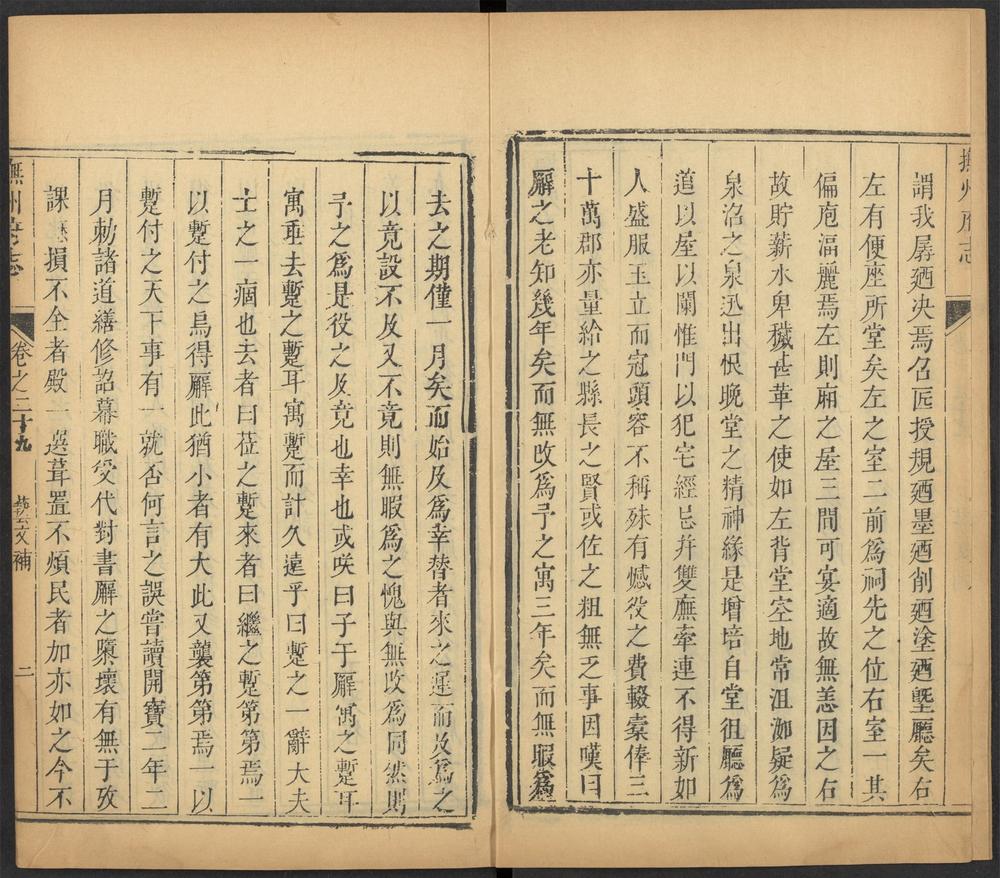 撫州府志
謂我孱廼决焉召匠授規廼墨廼削廼塗廼塈廳矣右
左有便座所堂矣左之室二前爲祠先之位右室一其
偏庖湢麗焉左則廂之屋三間可宴適故無恙因之右
故貯薪水卑穢甚革之使如左背堂空地常沮洳疑爲
泉沿之泉迅出恨晚堂之精神緣是增培自堂徂廳爲
道以屋以闌惟門以犯宅經忌并雙廡牽連不得新如
人盛服玉立而冠頭容不稱殊有憾役之費輟橐俸三
十萬郡亦量給之縣長之賢或佐之粗無乏事因嘆曰
廨之老知幾年矣而無改爲予之寓三年矣而無暇爲
去之期僅一月矣而始及爲幸替者來之遲而及爲之
以竟設不及又不竟則無暇爲之愧與無改爲同然則
予之爲是役之及竟也幸也或咲曰子于廨寓之蹔耳
寓乖去蹔之蹔耳寓蹔而計久遠乎曰蹔之一辭大夫
士之一痼也去者曰莅之蹔來者曰繼之蹔第第焉一
以蹔付之烏得廨此猶小者有大此又襲第第焉一以
蹔付之天下事有一就否何言之誤嘗讀開寶二年二
月勅諸道繕修詔幕職受代對書廨之隳壞有無于攷
課損不全者殿一選葺置不煩民者加亦如之今不
撫州府志
卷之三十九
藝文補
二